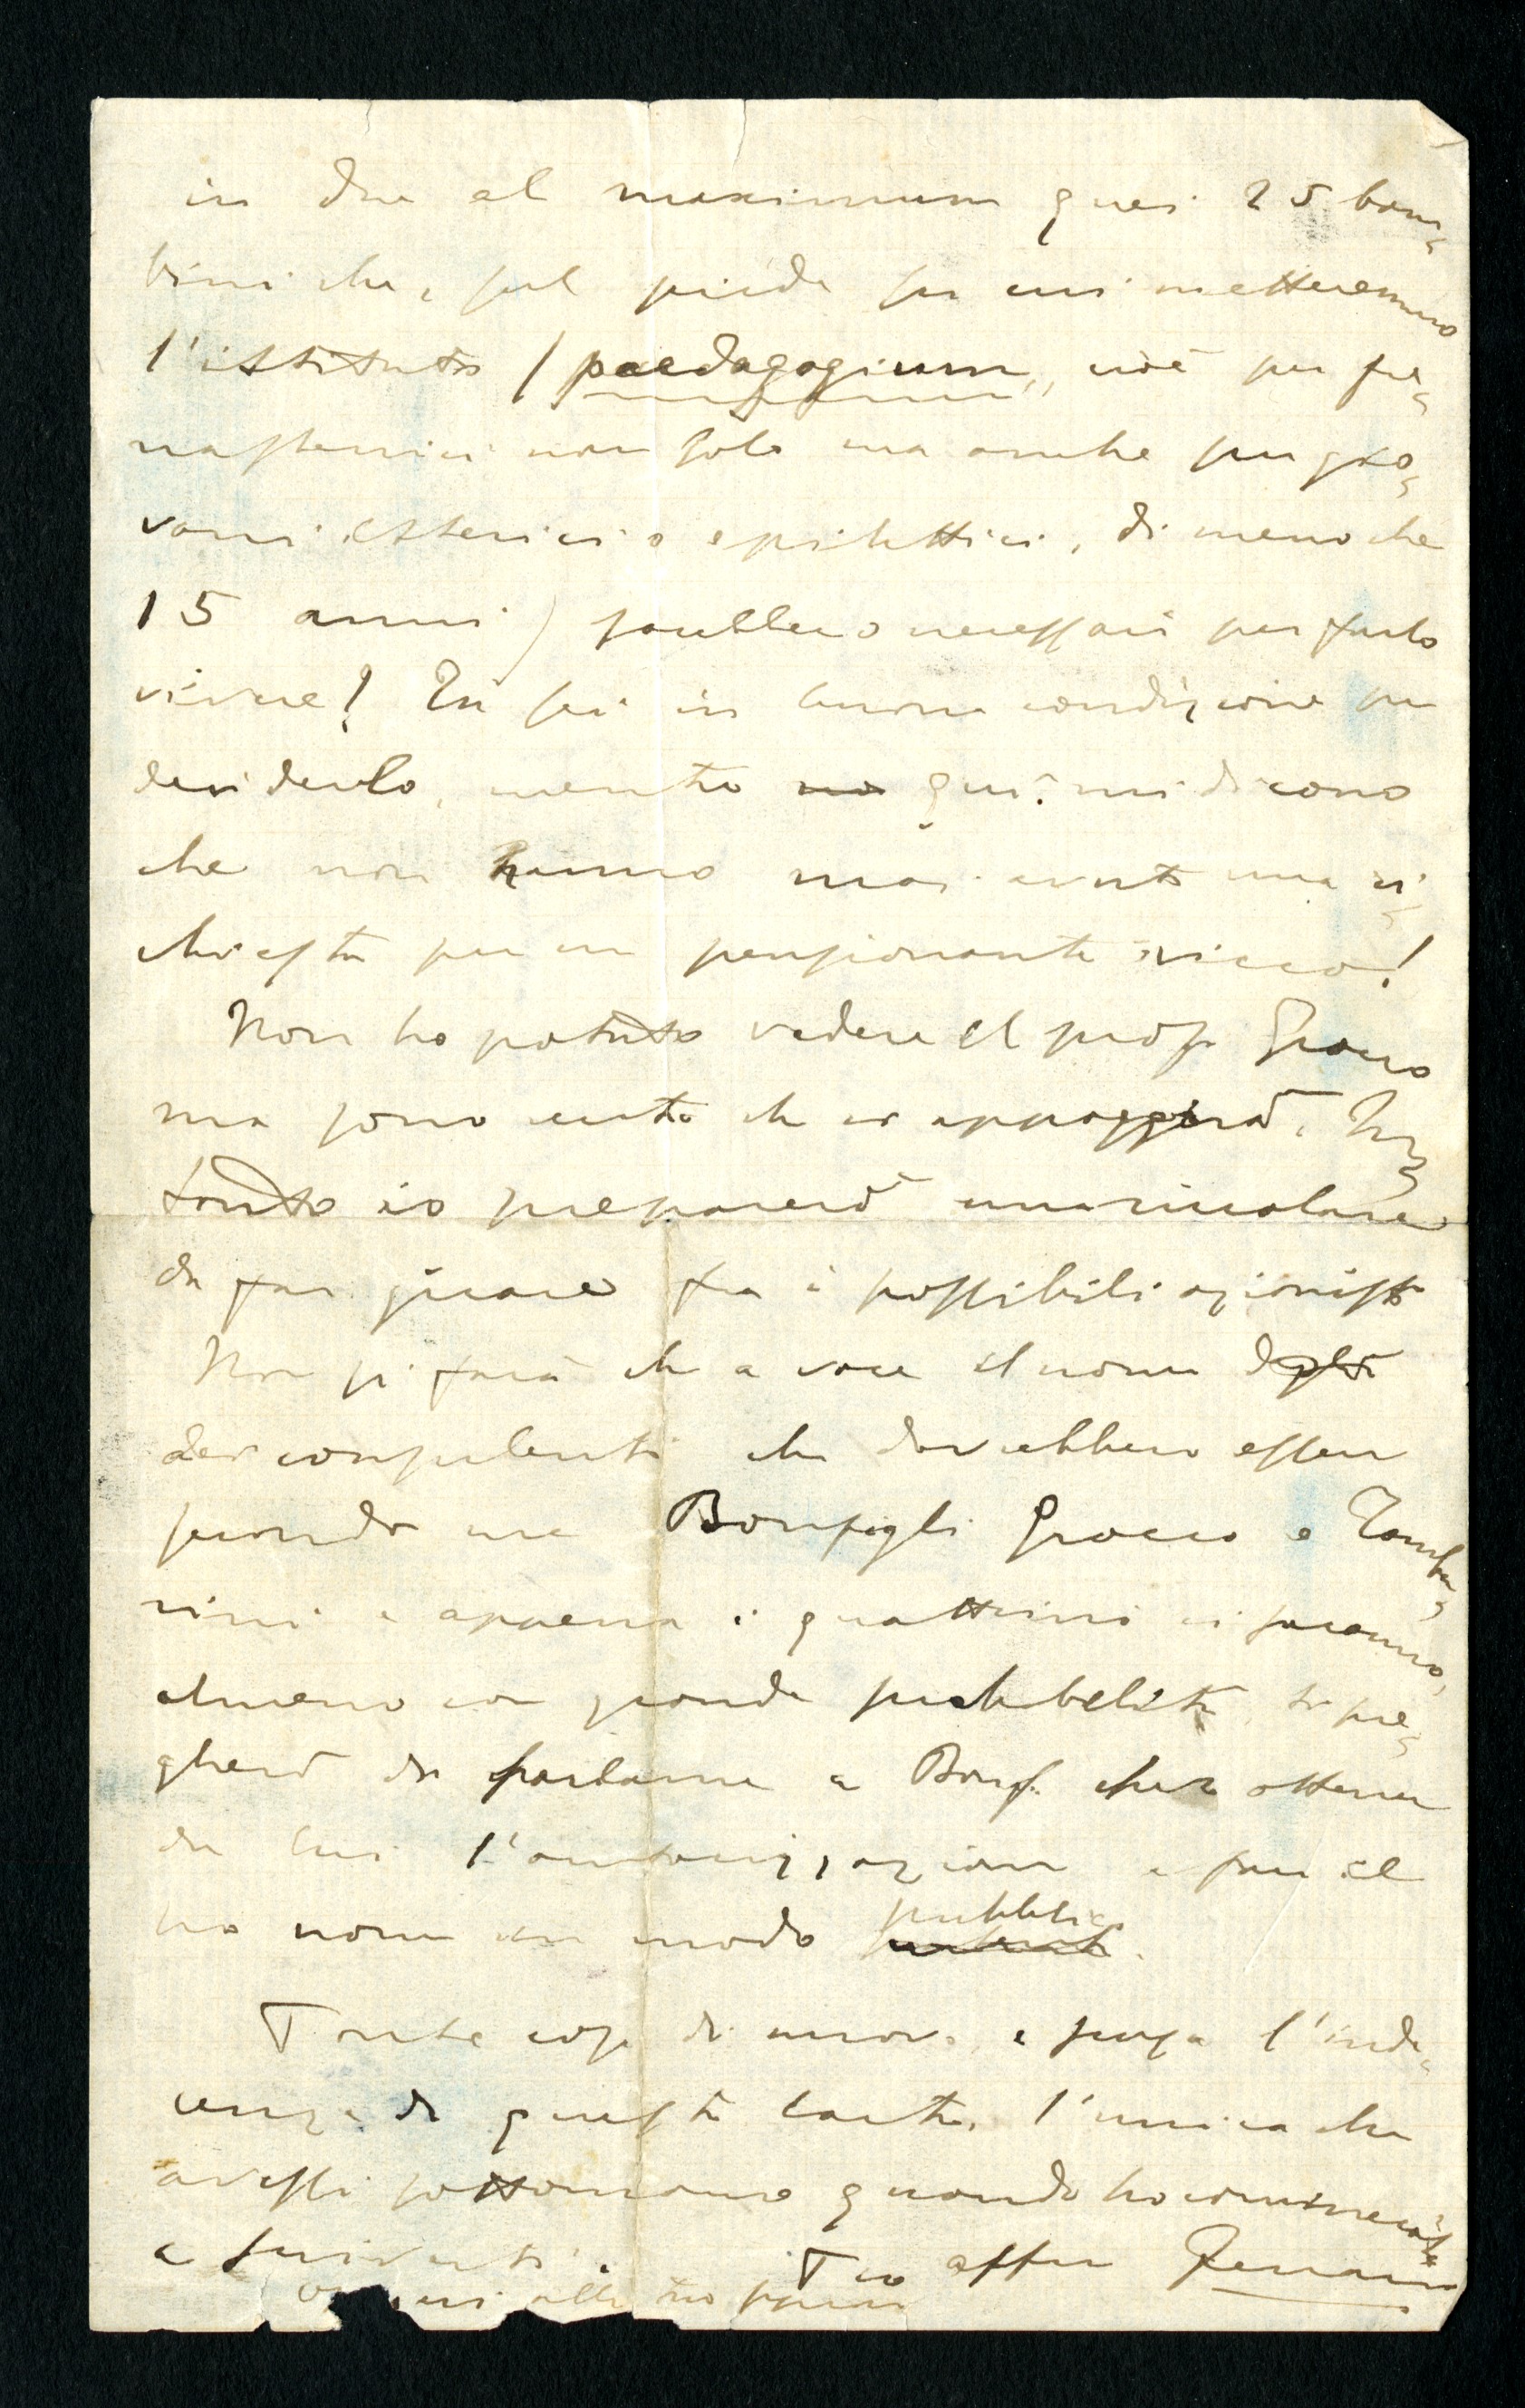 in due al maximum quei 25 bam=
bini che, sul piede su cui metteremmo
l'istituto (paedagogium,, cioè per fre=
nastenici non solo ma anche per gio=
vani isterici o epilettici, di meno che
15 anni) sarebbero necessari per farlo
vivere? Tu sei in buona condizione per
deciderlo, mentre no qui mi dicono
che non hanno mai avuto una ri=
chiesta per un pensionante ricco!
Non ho potuto vedere il prof Grocco
ma sono certo che ci appoggierà. In=
tanto io preparerò una circolare
da far girare fra i possibili azionisti
Non si farà che a voce il nome degli
dei consulenti che dovrebbero essere
secondo me Bonfigli Grocco e Tambu=
rini e appena i quattrini ci saranno,
almeno con grande probabilità, ti pre=
gherò di parlarne a Bonf. per ottenere
da lui l'autorizzazione a fare il
suo nome in modo pubblico.
Tante cose di nuovo, e scusa l'inde=
cenza di questa carta, l'unica che
avessi sottomano quando ho cominciato
a scriverti. Tuo affmo Ferrari
alla tua